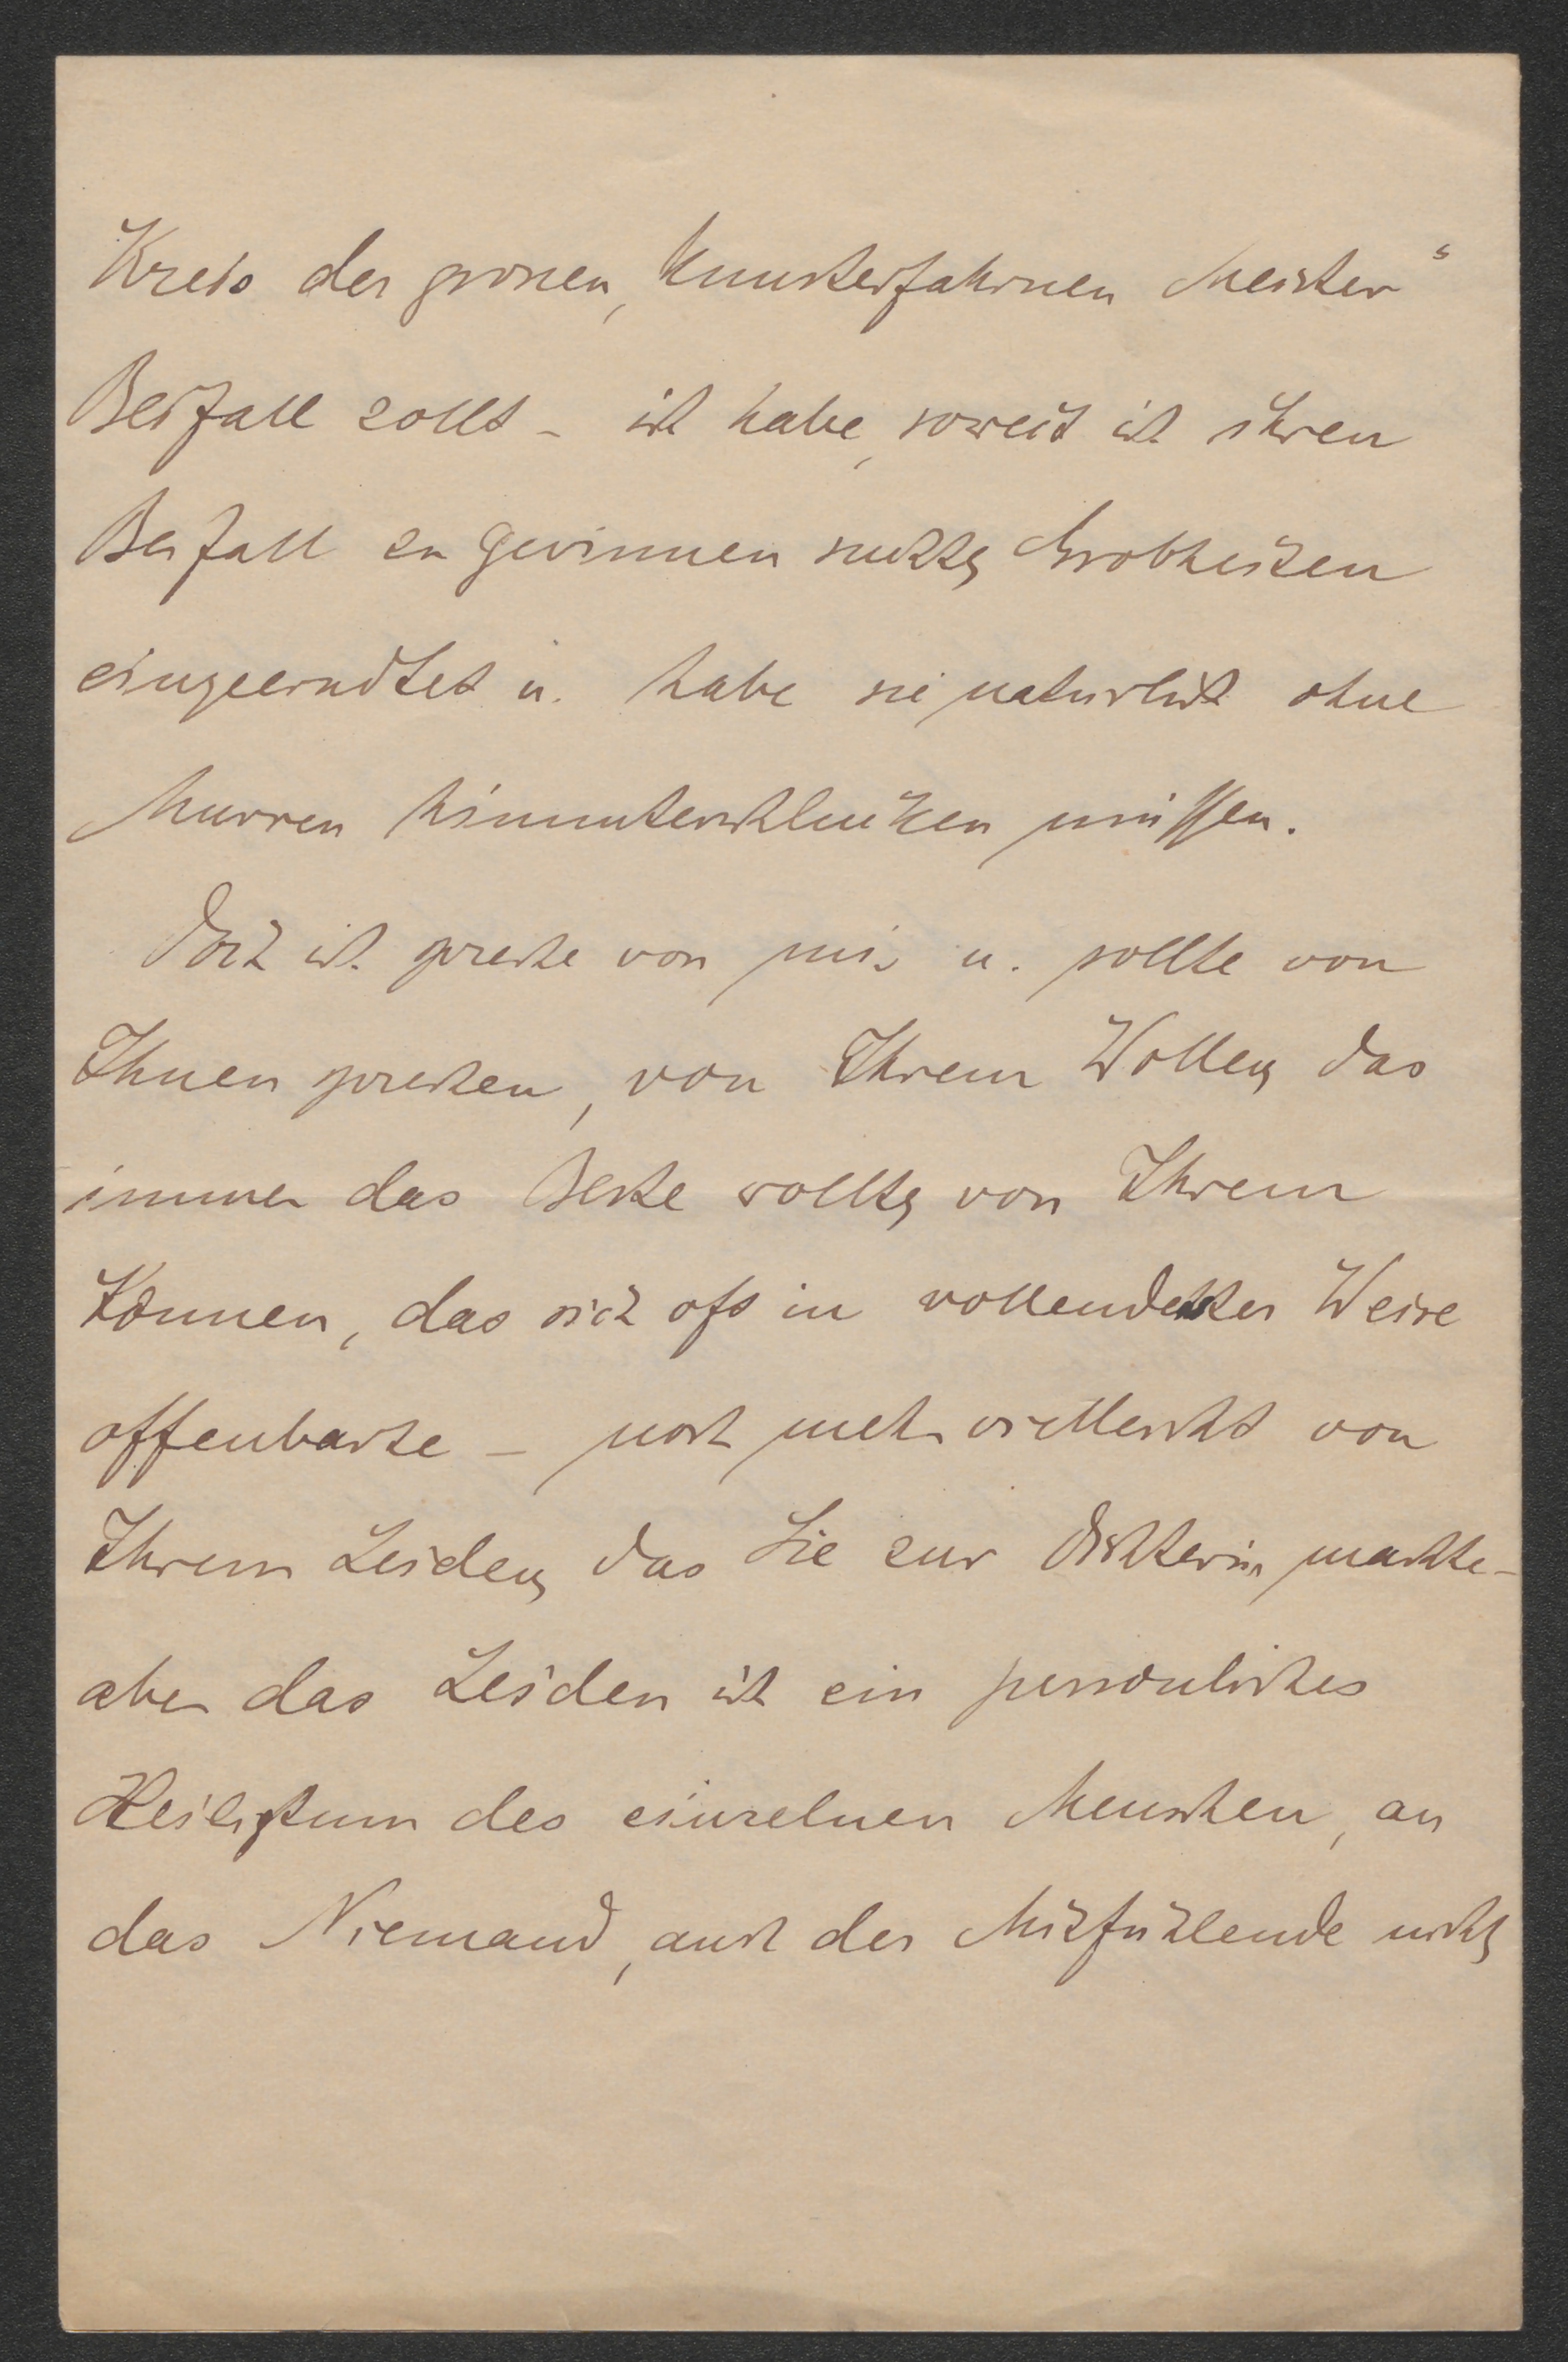 Kreis der grossen, kunsterfahrnen Meister“
Beifall zollt – ich habe, soweit ich ihren
Beifall zu gewinnen suchte, Grobheiten
eingeerndtet u. habe sie natürlich ohne
Murren hinunterschlucken müssen.
Doch ich spreche von mir u. sollte von
Ihnen sprechen, von Ihrem Wollen, das
immer das Beste wollte, von Ihrem
Können, das sich oft in vollendetster Weise
offenbarte – noch mehr vielleicht von
Ihrem Leiden, das Sie zur Dichterin machte –
aber das Leiden ist ein persönliches
Heiligtum des einzelnen Menschen, an
das Niemand, auch der Mitfühlende nicht,